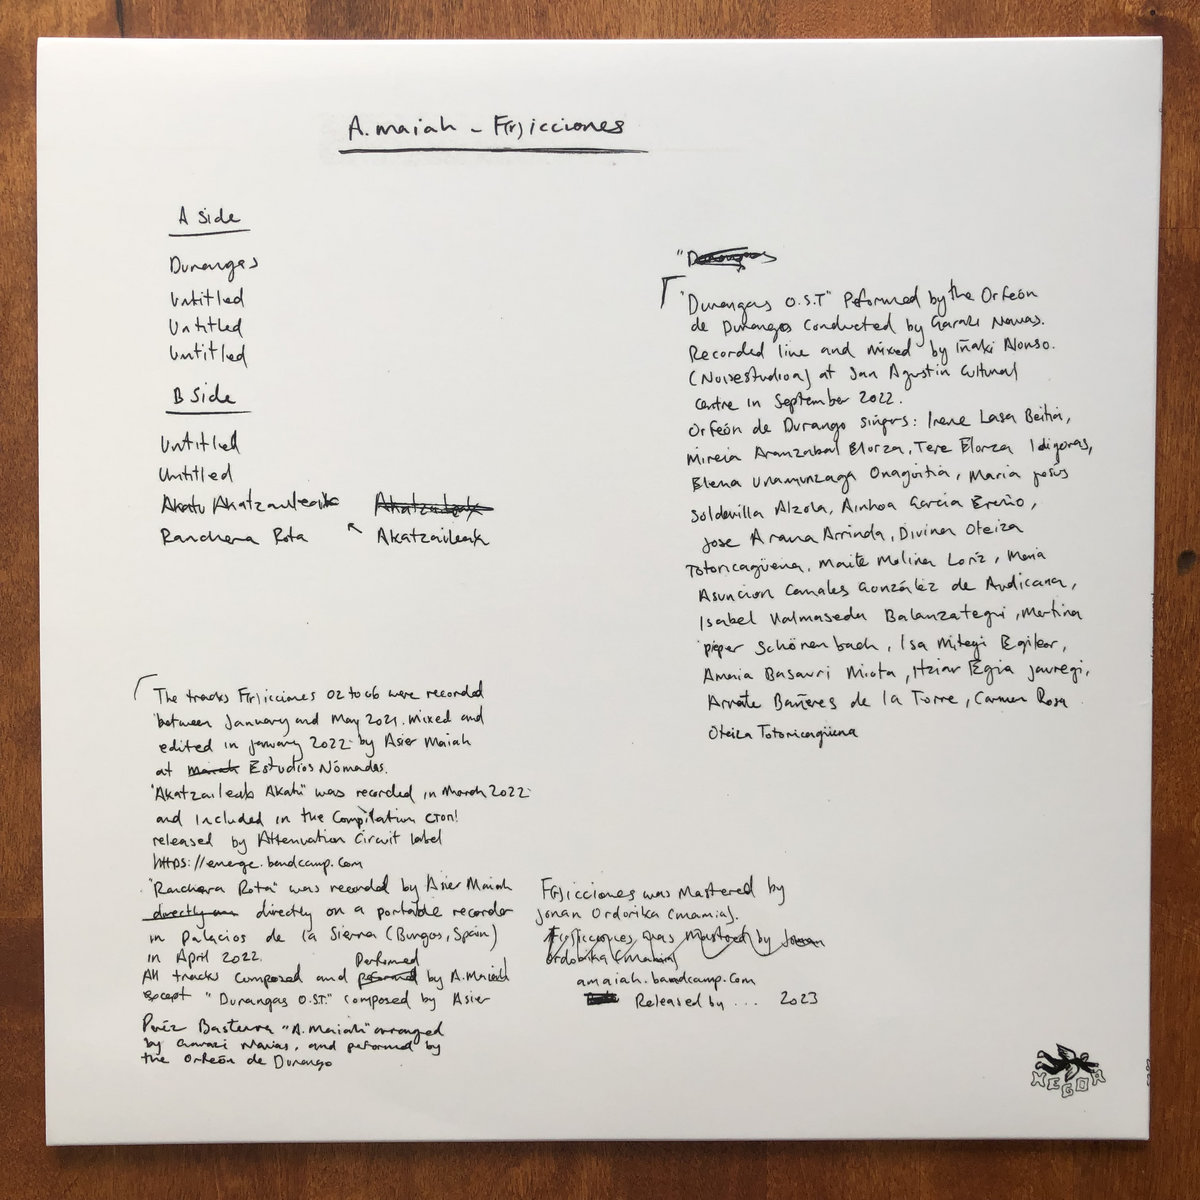 A. maiah - F(r)icciones
A Side
Durangas
Untitled
Untitled
Untitled
B Side
Untitled
Untitled
Akatu Akatzaileak
Akatzaileak
Ranchera Rota
Akatzaileak
"Durangas
"Durangas O.S.T" Peformed by the Orfeón
de Durango Conducted by Garazi Navas.
Recorded line and mixed by Iñaki Alonso.
(Noisestudioa) at San Agustin Cultural
Centre in September 2022.
Orfeón de Durango singers: Irene Lasa Beitia,
Mireia Aranzabal Elorza, Tere Elorza Idigoras,
Elena Unamunzaga Onagoitia, Maria Jesús
Soldevilla Alzola, Ainhoa Garcia Ereño,
Jose Arana Arrinda, Divina Oteiza
Totoricagüena, Maite Molina Loriz, Maria
Asuncion Canales González de Audicana,
Isabel Valmaseda Balanzategui, Martina
pieper Schönenbach, Isa Mitegi Egileor,
Amaia Basauri Miota, Itziar Egia Jauregi,
Arrate Bañeres de la Torre, Carmen Rosa
Oteiza Totoricagüena
The tracks F(r)icciones 02 to 06 were recorded
between January and May 2021. Mixed and
edited in january 2022 by Asier Maiah
at Maiah Estudios Nómadas.
"Akatzaileak Akatu" was recorded in March 2022
and included in the Compilation CTON!
released by Attenuation Circuit label
https://emerge.bandcamp.com
"Ranchera Rota" was recorded by Asier Maiah
directly on directly on a portable recorder
in Palacios de la Sierra (Burgos, Spain)
in April 2022.
Performed
All tracks composed and peformed by A.Maiah
except "Durangas O.S.T." composed by Asier
Periz Basterra "A. Maiah" arranged
by Garazi Navas, and peformed by
the Orfeón de Durango
F(r)icciones was Mastered by
Jonan Ordorika (Mamia).
F(r)icciones was Mastered by Jonan
Ordorika (Mamia)
amaiah.bandcamp.com
Released by ... 2023
HEGOA